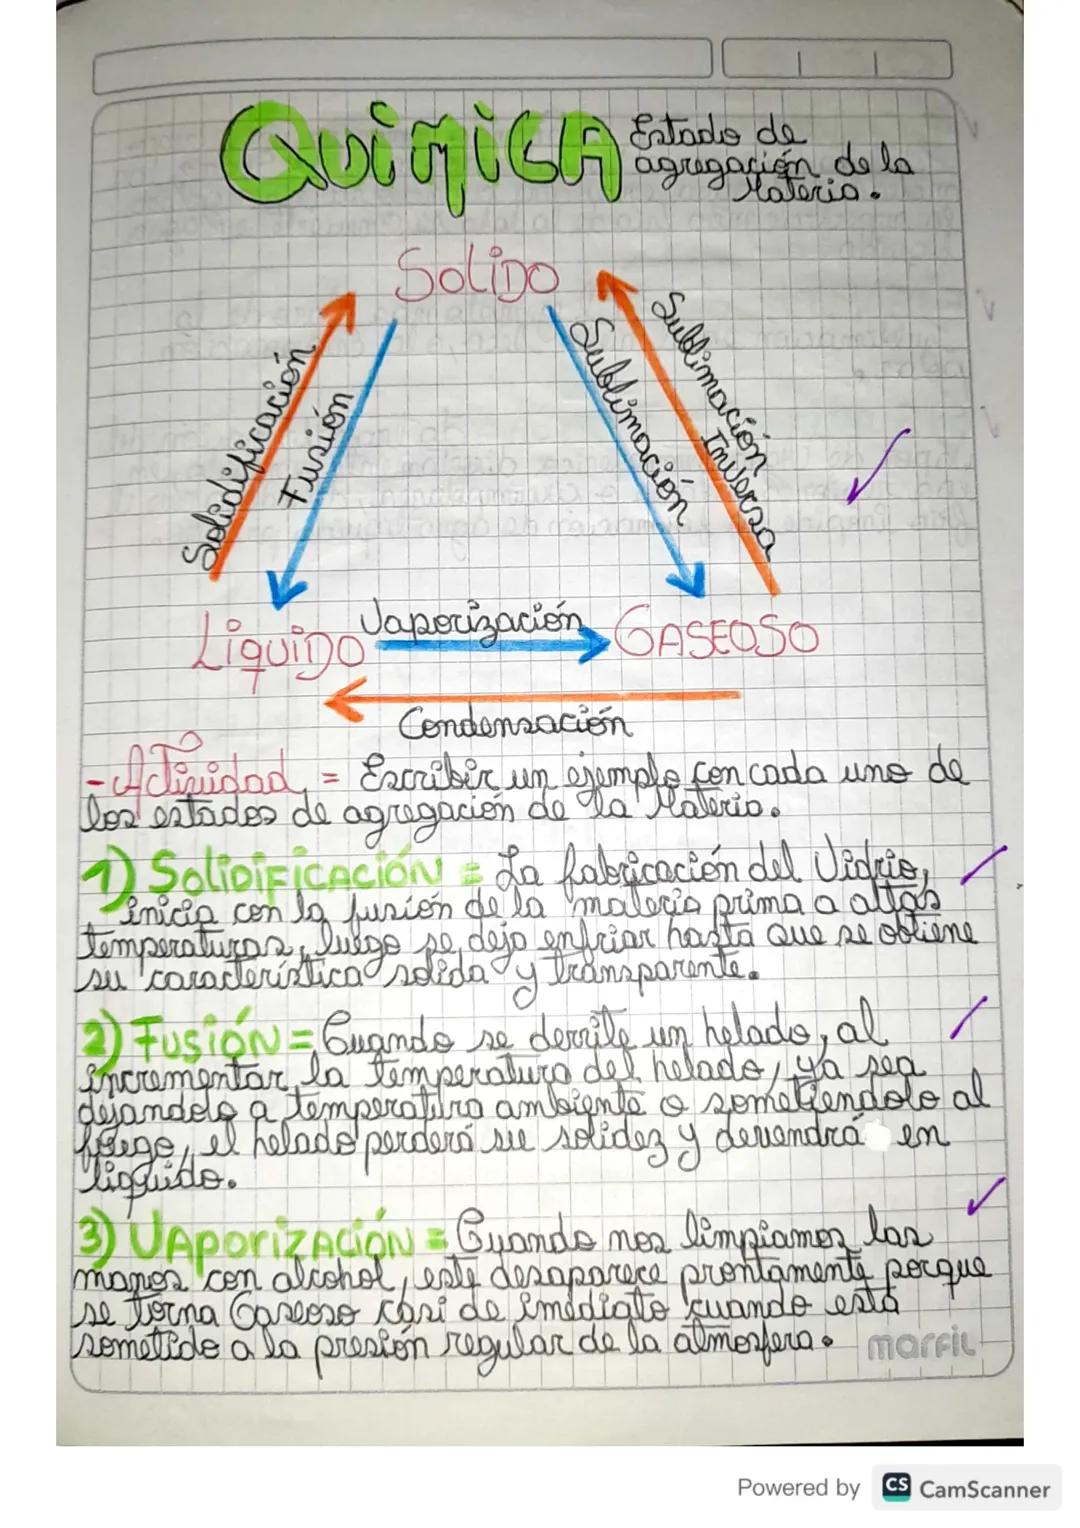 QuímicA Estado de
agregación de la
Materia.
SoliDO
Solidificación
Fusión
Sublimación
Sublimación
Inversa
LíquiDO
Vaporización
GASEOSO
Condensación
- Actividad = Escribir un ejemplo con cada uno de
los estados de agregación de la Materia.
1) SoliDiFiCACiÓN = La fabricación del Vidrio,
inicia con la fusión de la materia prima a altas
temperaturas, luego se deja enfriar hasta que se obtiene
su característica solida y transparente.
2) Fusión = Cuando se derrite un helado, al
incrementar la temperatura del helado, ya sea
dejandolo a temperatura ambiente o sometiendolo al
fuego, el helado perderá su solidez y devendrá en
liquido.
3) VAporizACión = Cuando nos limpiamos las
manos con alcohol, este desaparece prontamente porque
se torna Gaseoso casi de imediato cuando está
sometido a la presión regular de la atmosfera.
marfil
Powered by CS CamScanner